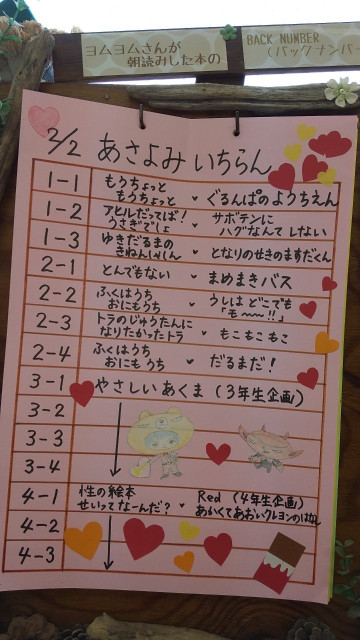 ヨムヨムさんが
朝読みした本の
BACK NUMBER
(バックナンバ
2/2 あさよみ いちらん
1-1 もうちょっと
もうちょっと ・ ぐるんぱのようちえん
1-2 アヒルだってば!
うさぎでしょ ・ サボテンに
ハグなんてしない
1-3 ゆきだるまの
きねんしゃしん ・ となりのせきのますだくん
2-1 とんでもない ・ まめまきバス
2-2 ふくはうち
おにもうち ・ うしは どこでも
「も〜〜!!」
2-3 トラのじゅうたんに
なりたかったトラ ・ もこ もこもこ
2-4 ふくはうち
おにも うち ・ だるまだ!
3-1 やさしい あくま (3年生企画)
3-2
3-3
3-4
4-1 性の絵本
せいってなーんだ? ・ Red (4年生企画)
あかくてあおいクレヨンのはなし
4-2
4-3